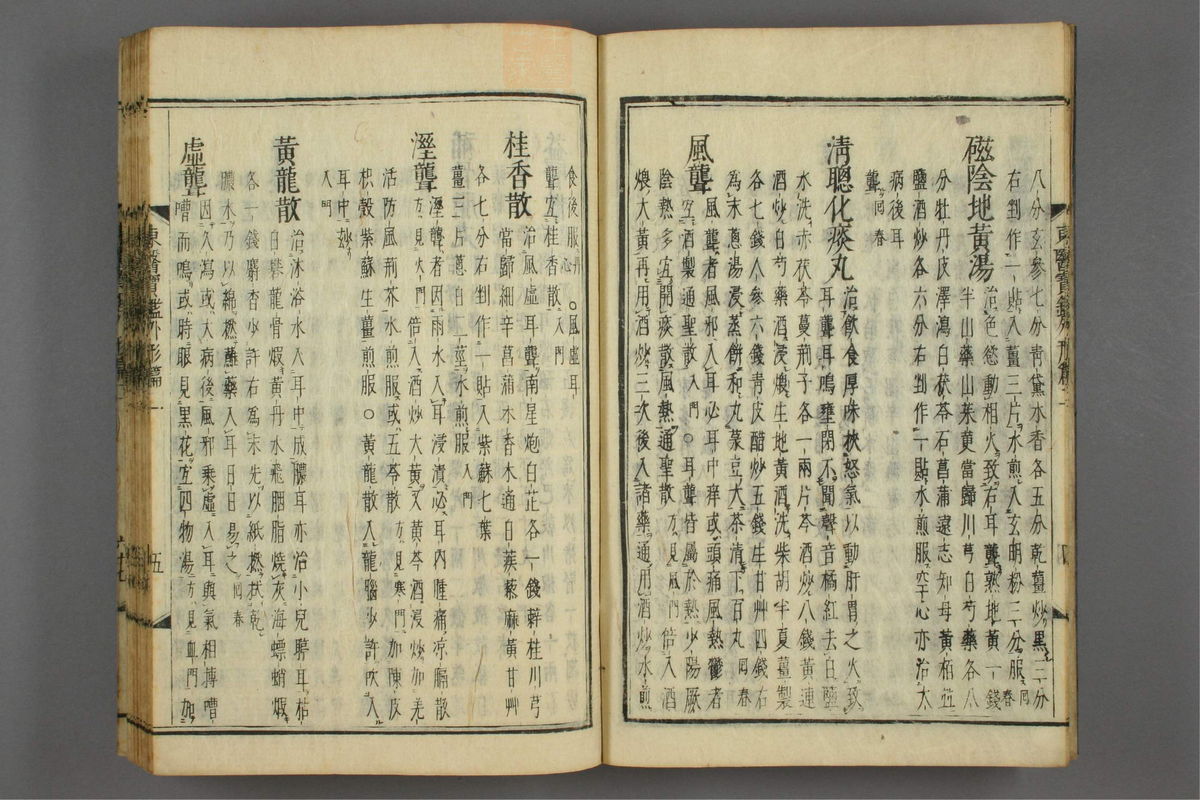 八分玄參七分靑黛水香各五分乾薑炒黑三分
右剉作一貼入薑三片水煎入玄明粉三分服回春
磁陰地黃湯治色慾動相火致右耳聾熟地黃一錢
半山藥山茱萸當歸川芎白芍藥各八
分牡丹皮澤瀉白茯苓石菖蒲遠志知母黃栢並
鹽酒炒各六分右剉作一貼水煎服空心亦治太
病後耳
聾回春
淸聰化痰丸治飮食厚味挾怒氣以動肝胃之火致
耳聾耳鳴壅閉不聞聲音橘紅去白鹽
水洗赤茯苓蔓荊子各一兩片芩酒炒八錢黃連
酒炒白芍藥酒浸煨生地黃酒洗柴胡半夏薑製
各七錢人參六錢靑皮醋炒五錢生甘艸四錢右
爲末蔥湯浸蒸餠和丸菉豆大茶淸下百丸回春
風聾風聾者風邪入耳必耳中痒或頭痛風熱鬱者
宜酒製通聖散入門○耳聾皆屬於熱少陽厥
陰熱多宜開痰散風熱通聖散方見風門倍入酒
煨大黃再用酒炒三次後入諸藥通用酒炒水煎
食後服丹心○風虛耳
聾宜桂香散入門
桂香散治風虛耳聾南星炮白芷各一錢辢桂川芎
當歸細辛菖蒲木香木通白蒺藜麻黃甘艸
各七分右剉作一貼入紫蘇七葉
薑三片蔥白二莖水煎服入門
溼聾溼聾者因雨水入耳浸漬必耳內腫痛凉膈散
方見火門倍入酒炒大黃又黃芩酒浸炒加羌
活防風荊芥水煎服或五苓散方見寒門加陳皮
枳殼紫蘇生薑煎服○黃龍散入龍腦少許吹入
耳中妙
入門
黃龍散治沐浴水入耳中成膿耳亦治小兒聤耳枯
白礬龍骨煆黃丹水飛胭脂燒灰海螵蛸煆
各一錢麝香少許右爲末先以紙撚拭乾
膿水乃以綿撚蘸藥入耳日日易之回春
虛聾因久瀉或大病後風邪乘虛入耳與氣相搏嘈
嘈而鳴或時眼見黑花宜四物湯方見血門加
東醫寶鑑外形篇二
五